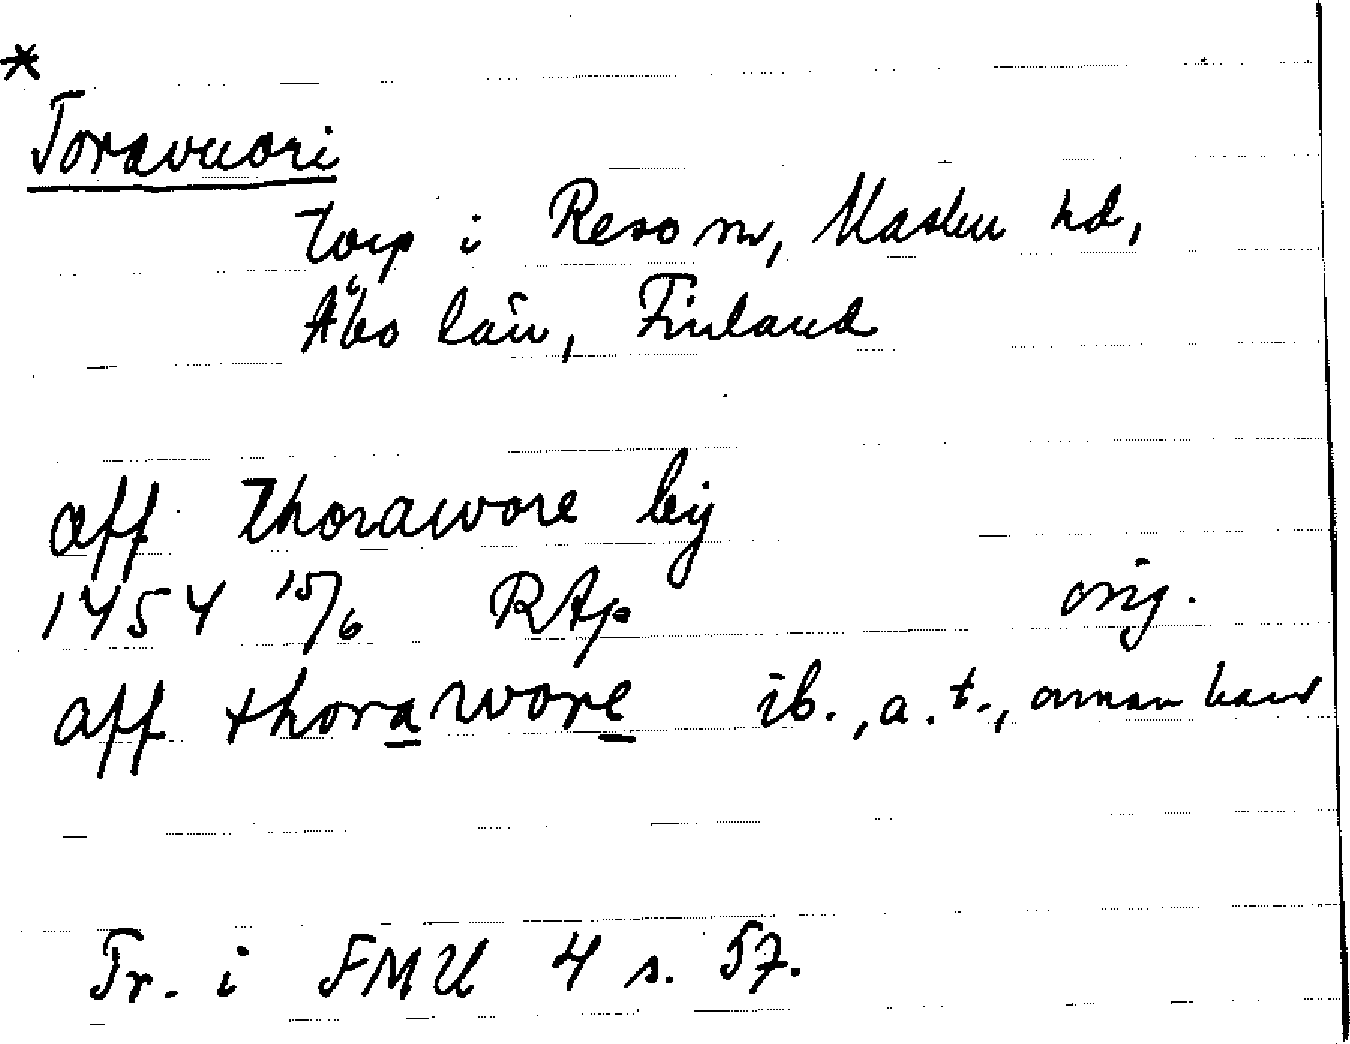 *
Toravuori
torp i Reso sn, Masku hd,
Åbo län, Finland
aff Thorawore by
1454 15/6 RAp orig.
aff thorawore ib., a.t., annan hand
Tr. i FMU 4 s. 57.